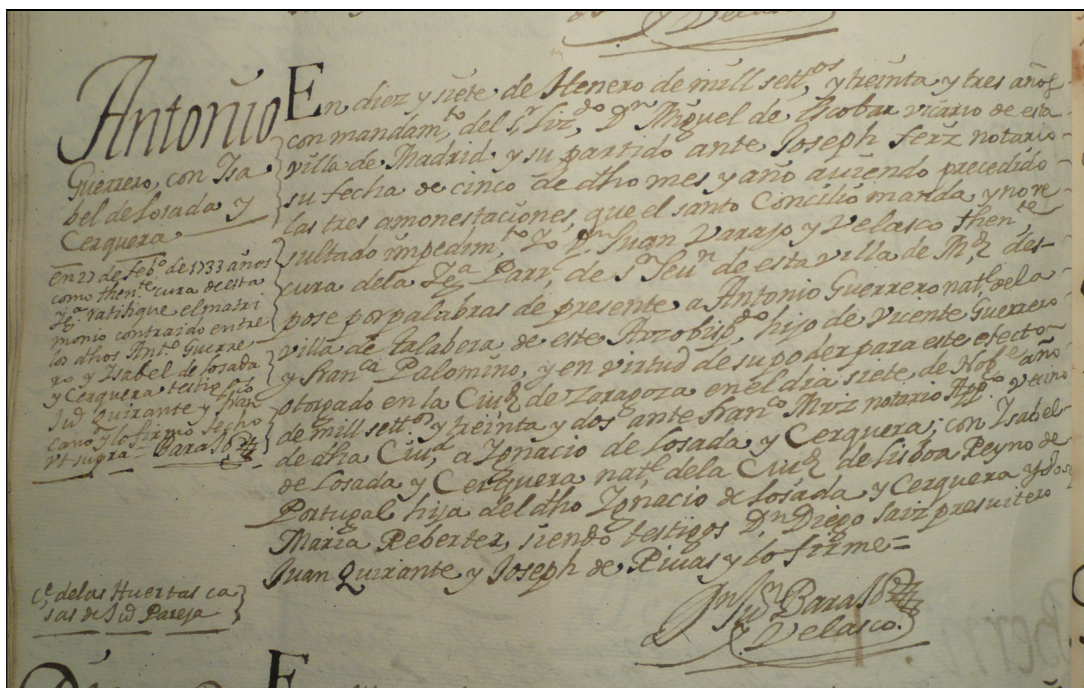 y Velasco
Antonio
Guerrero, con Isa
bel de Losada y
Cerquera
en 27 de feb.º de 1733 años
como then.te cura de esta
Ygl.ª ratifique el matri
monio contraido entre
los dhos Ant.º Guerre
ro y Isabel de Losada
y Cerquera testig.s
Ju.º Quirante y fran.co
cano y lo firmo fecho
ut supra = Baraso
C.e de las Huertas ca
sas de Ju.º Pareja
En diez y siete de Henero de mill sett.os y treinta y tres años
con mandam.to del S.r Liz.do D.n Miguel de Escobar vicario de esta
villa de Madrid y su partido ante Joseph ferz notario
su fecha de cinco de dho mes y año auiendo precedido
las tres amonestaciones que el santo Concilio manda y no re
sultado impedim.to Yo D.n Juan Varajo y Velasco then.te
cura de la Ygl.ª Parr.l de S.n Seu.n de esta villa de M.d des-
pose por palabras de presente a Antonio Guerrero nat.l de la
villa de talabera de este Arzobisp.do hijo de Vicente Guerrero
y fran.ca Palomino, y en virtud de su poder para este efecto
otorgado en la Ciu.d de Zaragoza en el dia siete de Nob.e año
de mill sett.os y treinta y dos ante fran.co Mrz notario App.co vecino
de dha Ciu.d, a Ygnacio de Losada y Cerquera; con Isabel
de Losada y Cerquera nat.l de la Ciu.d de Lisboa Reyno de
Portugal hija del dho Ygnacio de Losada y Cerquera y de D.ª
Maria Reberter, siendo testigos D.n Diego Saiz presuitero
Juan Quirante y Joseph de Riuas y lo firme =
Ju.n Baraso
y Velasco